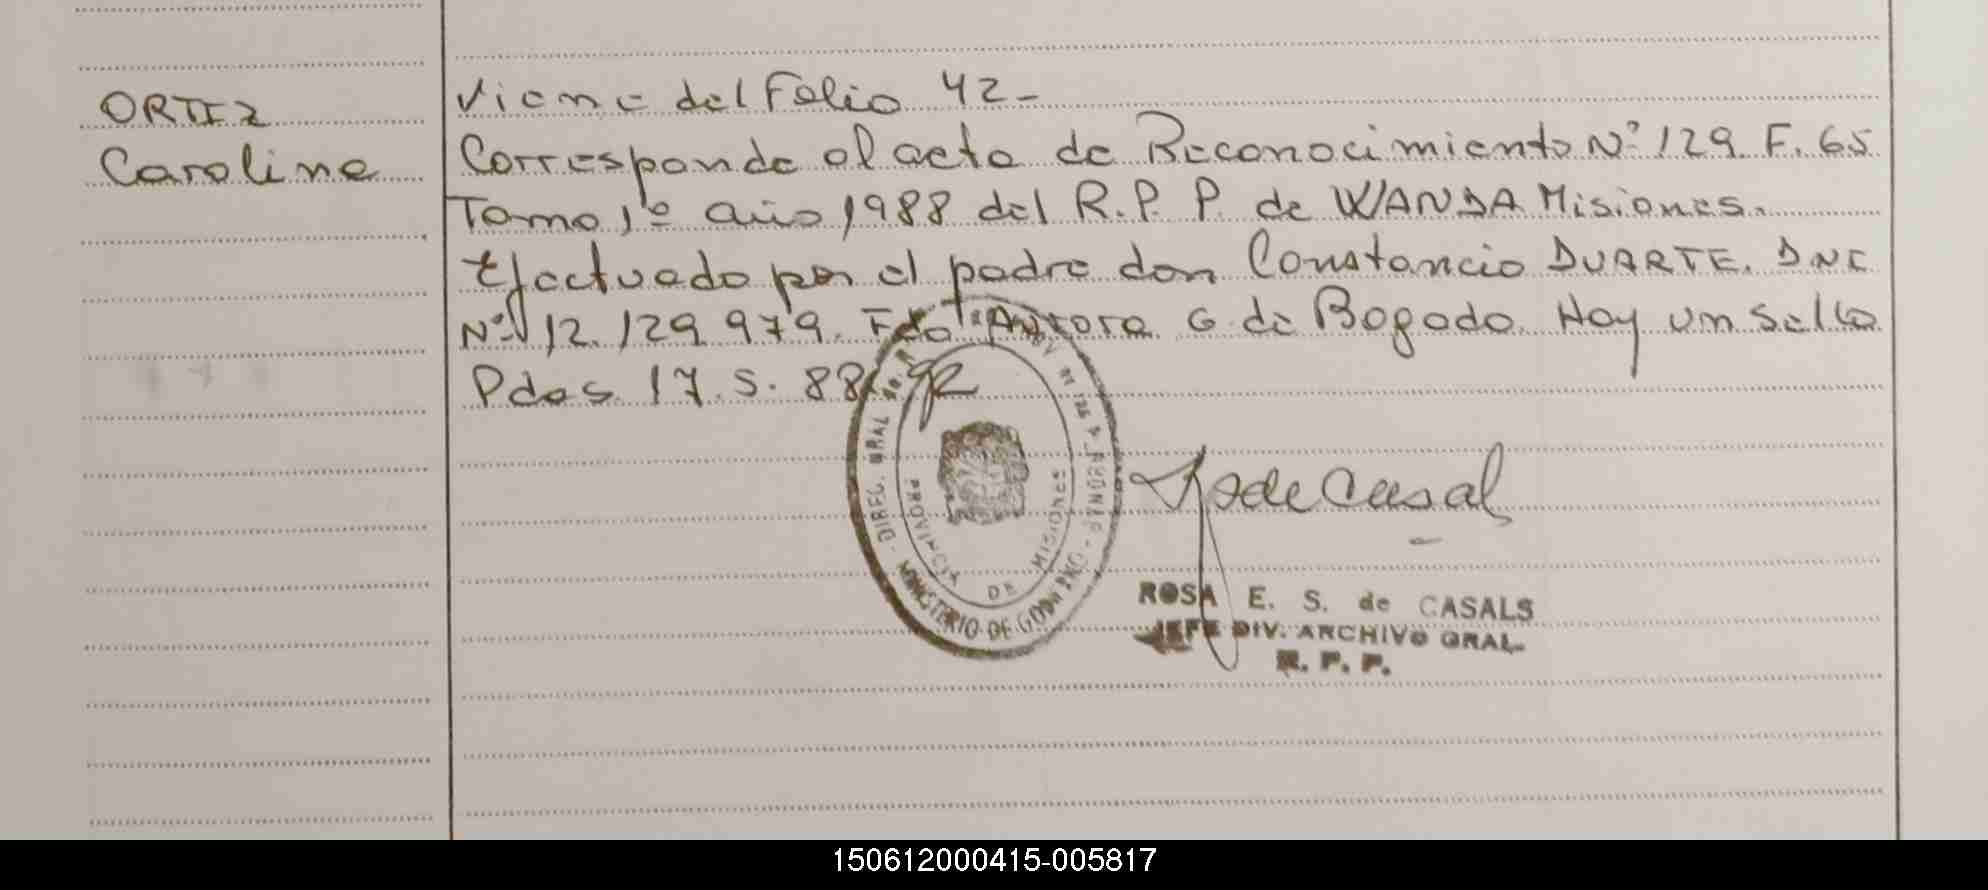 ORTIZ
Carolina
Viene del Folio 42-
Corresponde al acta de Reconocimiento Nº 129 F. 65
Tomo 1º año 1988 del R.P.P. de WANDA Misiones.
Efectuado por el padre don Constancio DUARTE. DNI
Nº 12.129.979. Fdo Aurora G de Bogado. Hay un sello
Pdas 17.5.88
DIREC. GRAL
MINISTERIO DE GOBIERNO
PROVINCIA DE MISIONES
R de Casals
ROSA E. S. de CASALS
JEFE DIV. ARCHIVO GRAL.
R. P. P.
150612000415-005817